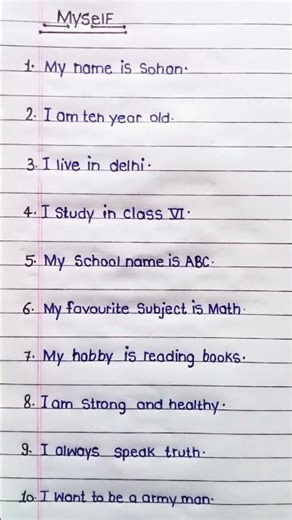 MYSELF
1. My name is Sohan.
2. I am ten year old.
3. I live in delhi.
4. I Study in class VI.
5. My School name is ABC.
6. My favourite Subject is Math.
7. My hobby is reading books.
8. I am Strong and healthy.
9. I always speak truth.
10. I want to be a army man.